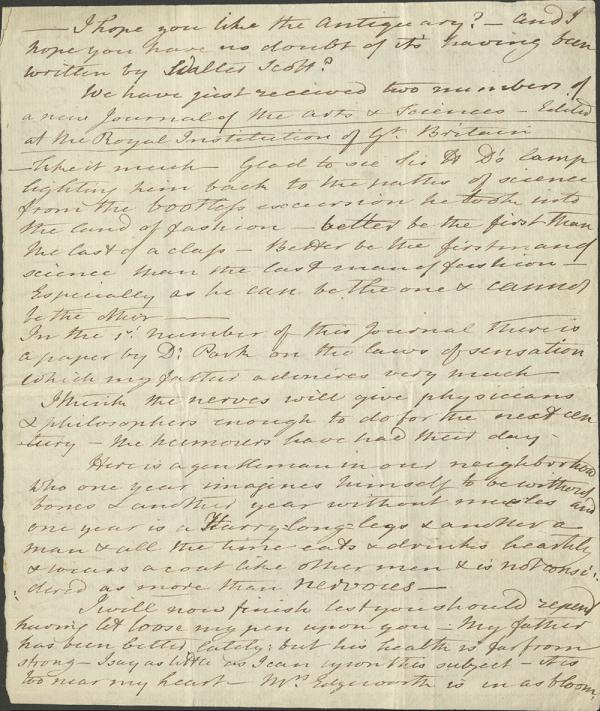 — I hope you like the Antiquary? — and I
hope you have no doubt of it's having been
written by Walter Scott?
We have just received two numbers of
a new Journal of the Arts & Sciences — Edited
at the Royal Institution of Gt. Britain
— like it much — Glad to see Sir H D's lamp
lighting him back to the paths of science
from the bootless excursion he took into
the land of fashion — better be the first than
the last of a class — Better be the first man of
science than the last man of fashion —
Especially as he can be the one & cannot
be the other —
In the 1st number of this Journal there is
a paper by Dr Park on the laws of sensation
which my father admires very much
I think the nerves will give physicians
& philosophers enough to do for the next cen
-tury — the humours have had their day -
Here is a gentleman in our neighborhood
who one year imagines himself to be without
bones & another year without muscles and
one year is a Harry-long-legs & another a
man & all the time eats & drinks heartily
& wears a coat like other men & is not consi:
:dered as more than nervous —
I will now finish lest you should repent
having let loose my pen upon you — My father
has been better lately; but his health is far from
strong — I say as little as I can upon this subject — it is
too near my heart — Mrs Edgeworth is in as bloom: